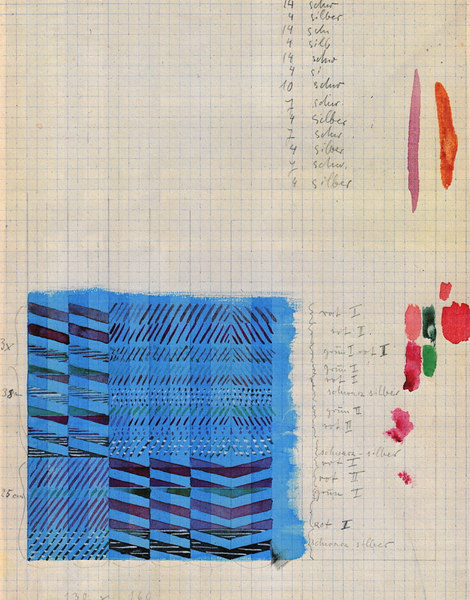 14 schw
4 silber
14 sch
4 silb
14 schw
4 si
10 schw
7 schw.
4 silber
7 schw.
4 silber
7 schw.
4 silber
rot I
rot I.
3x
grün I rot I
grün I
rot I
38
schwarz silber
grün II
rot II
schwarz-silber
rot I
rot II
25 cm
grün I
rot I
schwarz silber
130 x 160